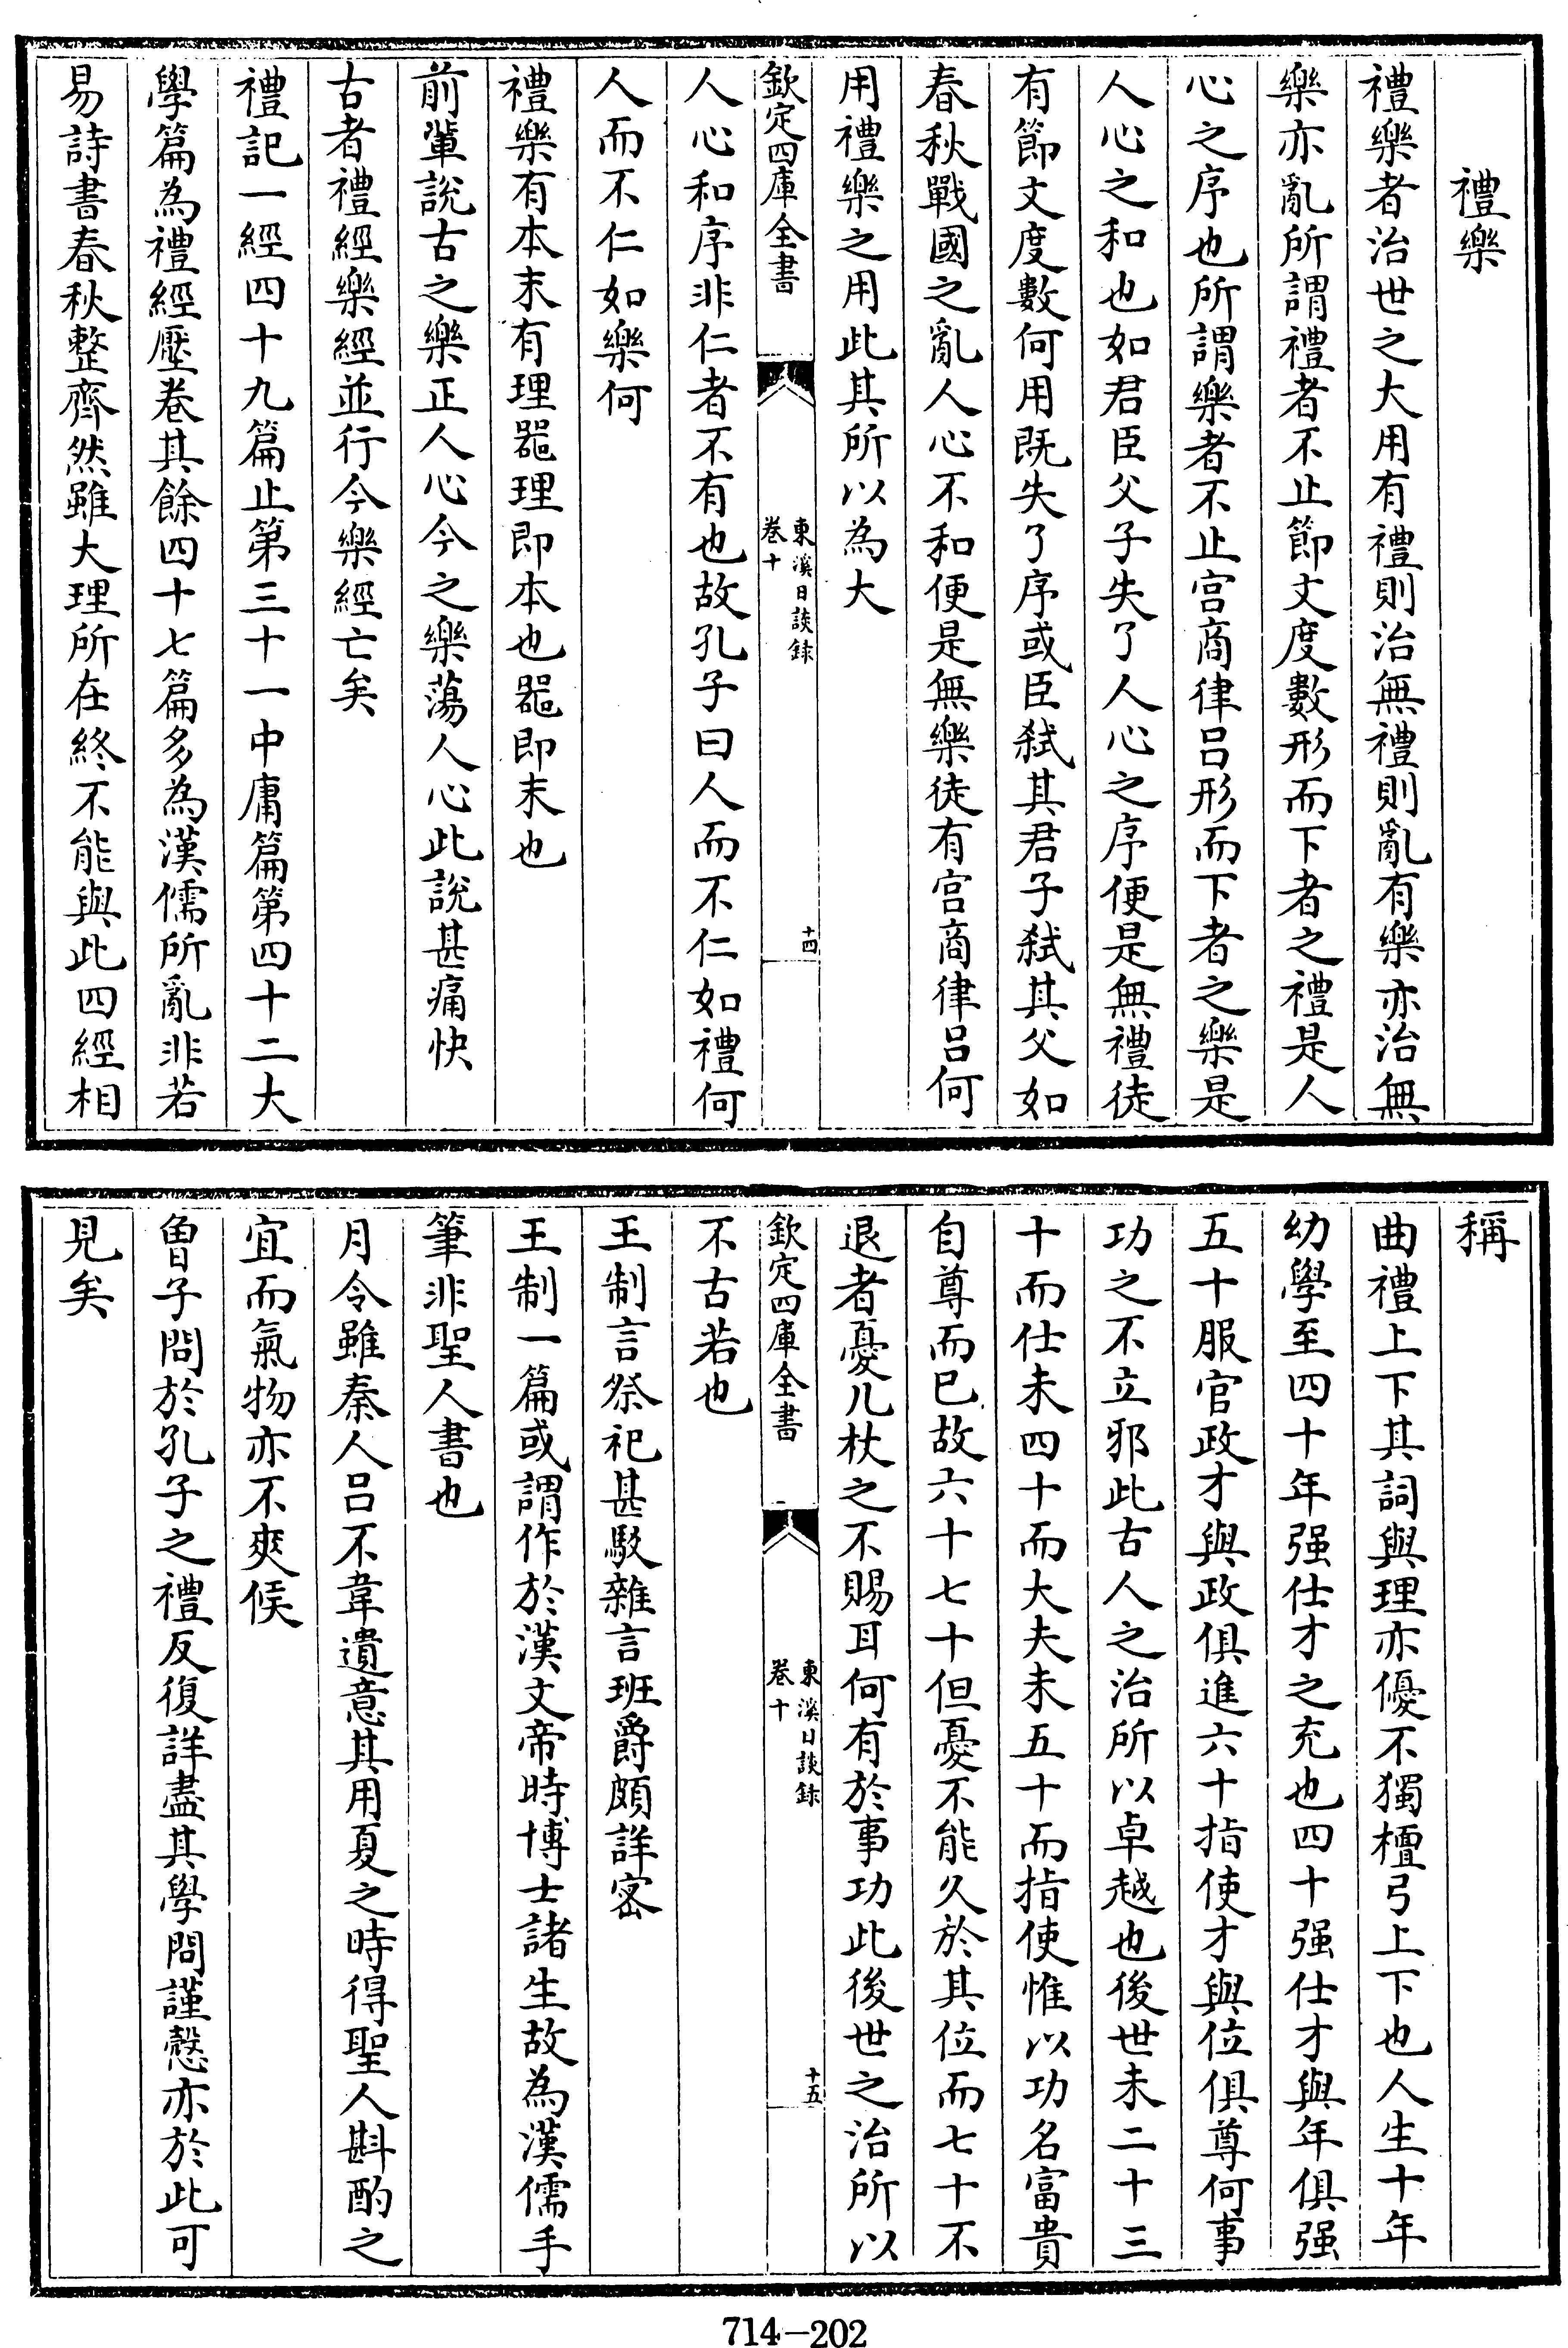 禮樂
禮樂者治世之大用有禮則治無禮則亂有樂亦治無
樂亦亂所謂禮者不止節文度數形而下者之禮是人
心之序也所謂樂者不止宫商律吕形而下者之樂是
人心之和也如君臣父子失了人心之序便是無禮徒
有節文度數何用既失了序或臣弑其君子弑其父如
春秋戰國之亂人心不和便是無樂徒有宫商律吕何
用禮樂之用此其所以為大
欽定四庫全書
東溪日談録
卷十
十四
人心和序非仁者不有也故孔子曰人而不仁如禮何
人而不仁如樂何
禮樂有本末有理器理即本也器即末也
前輩說古之樂正人心今之樂蕩人心此說甚痛快
古者禮經樂經並行今樂經亡矣
禮記一經四十九篇止第三十一中庸篇第四十二大
學篇為禮經壓卷其餘四十七篇多為漢儒所亂非若
易詩書春秋整齊然雖大理所在終不能與此四經相
稱
曲禮上下其詞與理亦優不獨檀弓上下也人生十年
幼學至四十年强仕才之充也四十强仕才與年俱强
五十服官政才與政俱進六十指使才與位俱尊何事
功之不立邪此古人之治所以卓越也後世未二十三
十而仕未四十而大夫未五十而指使惟以功名富貴
自尊而已故六十七十但憂不能久於其位而七十不
退者憂几杖之不賜耳何有於事功此後世之治所以
欽定四庫全書
東溪日談録
卷十
十五
不古若也
王制言祭祀甚駁雜言班爵頗詳密
王制一篇或謂作於漢文帝時博士諸生故為漢儒手
筆非聖人書也
月令雖秦人吕不韋遺意其用夏之時得聖人斟酌之
宜而氣物亦不爽候
曾子問於孔子之禮反復詳盡其學問謹慤亦於此可
見矣
714-202